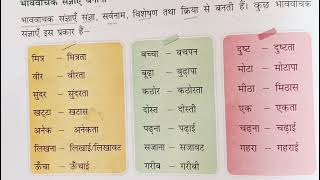 भाववाचक संज्ञाएँ बनाना
भाववाचक संज्ञाएँ संज्ञा, सर्वनाम, विशेषण तथा क्रिया से बनती हैं। कुछ भाववाचक
संज्ञाएँ इस प्रकार हैं–
मित्र – मित्रता
वीर – वीरता
सुंदर – सुंदरता
खट्टा – खटास
अनेक – अनेकता
लिखना – लिखाई/लिखावट
ऊँचा – ऊँचाई
बच्चा – बचपन
बूढ़ा – बुढ़ापा
कठोर – कठोरता
दोस्त – दोस्ती
पढ़ना – पढ़ाई
सजाना – सजावट
गरीब – गरीबी
दुष्ट – दुष्टता
मोटा – मोटापा
मीठा – मिठास
एक – एकता
चढ़ना – चढ़ाई
गहरा – गहराई